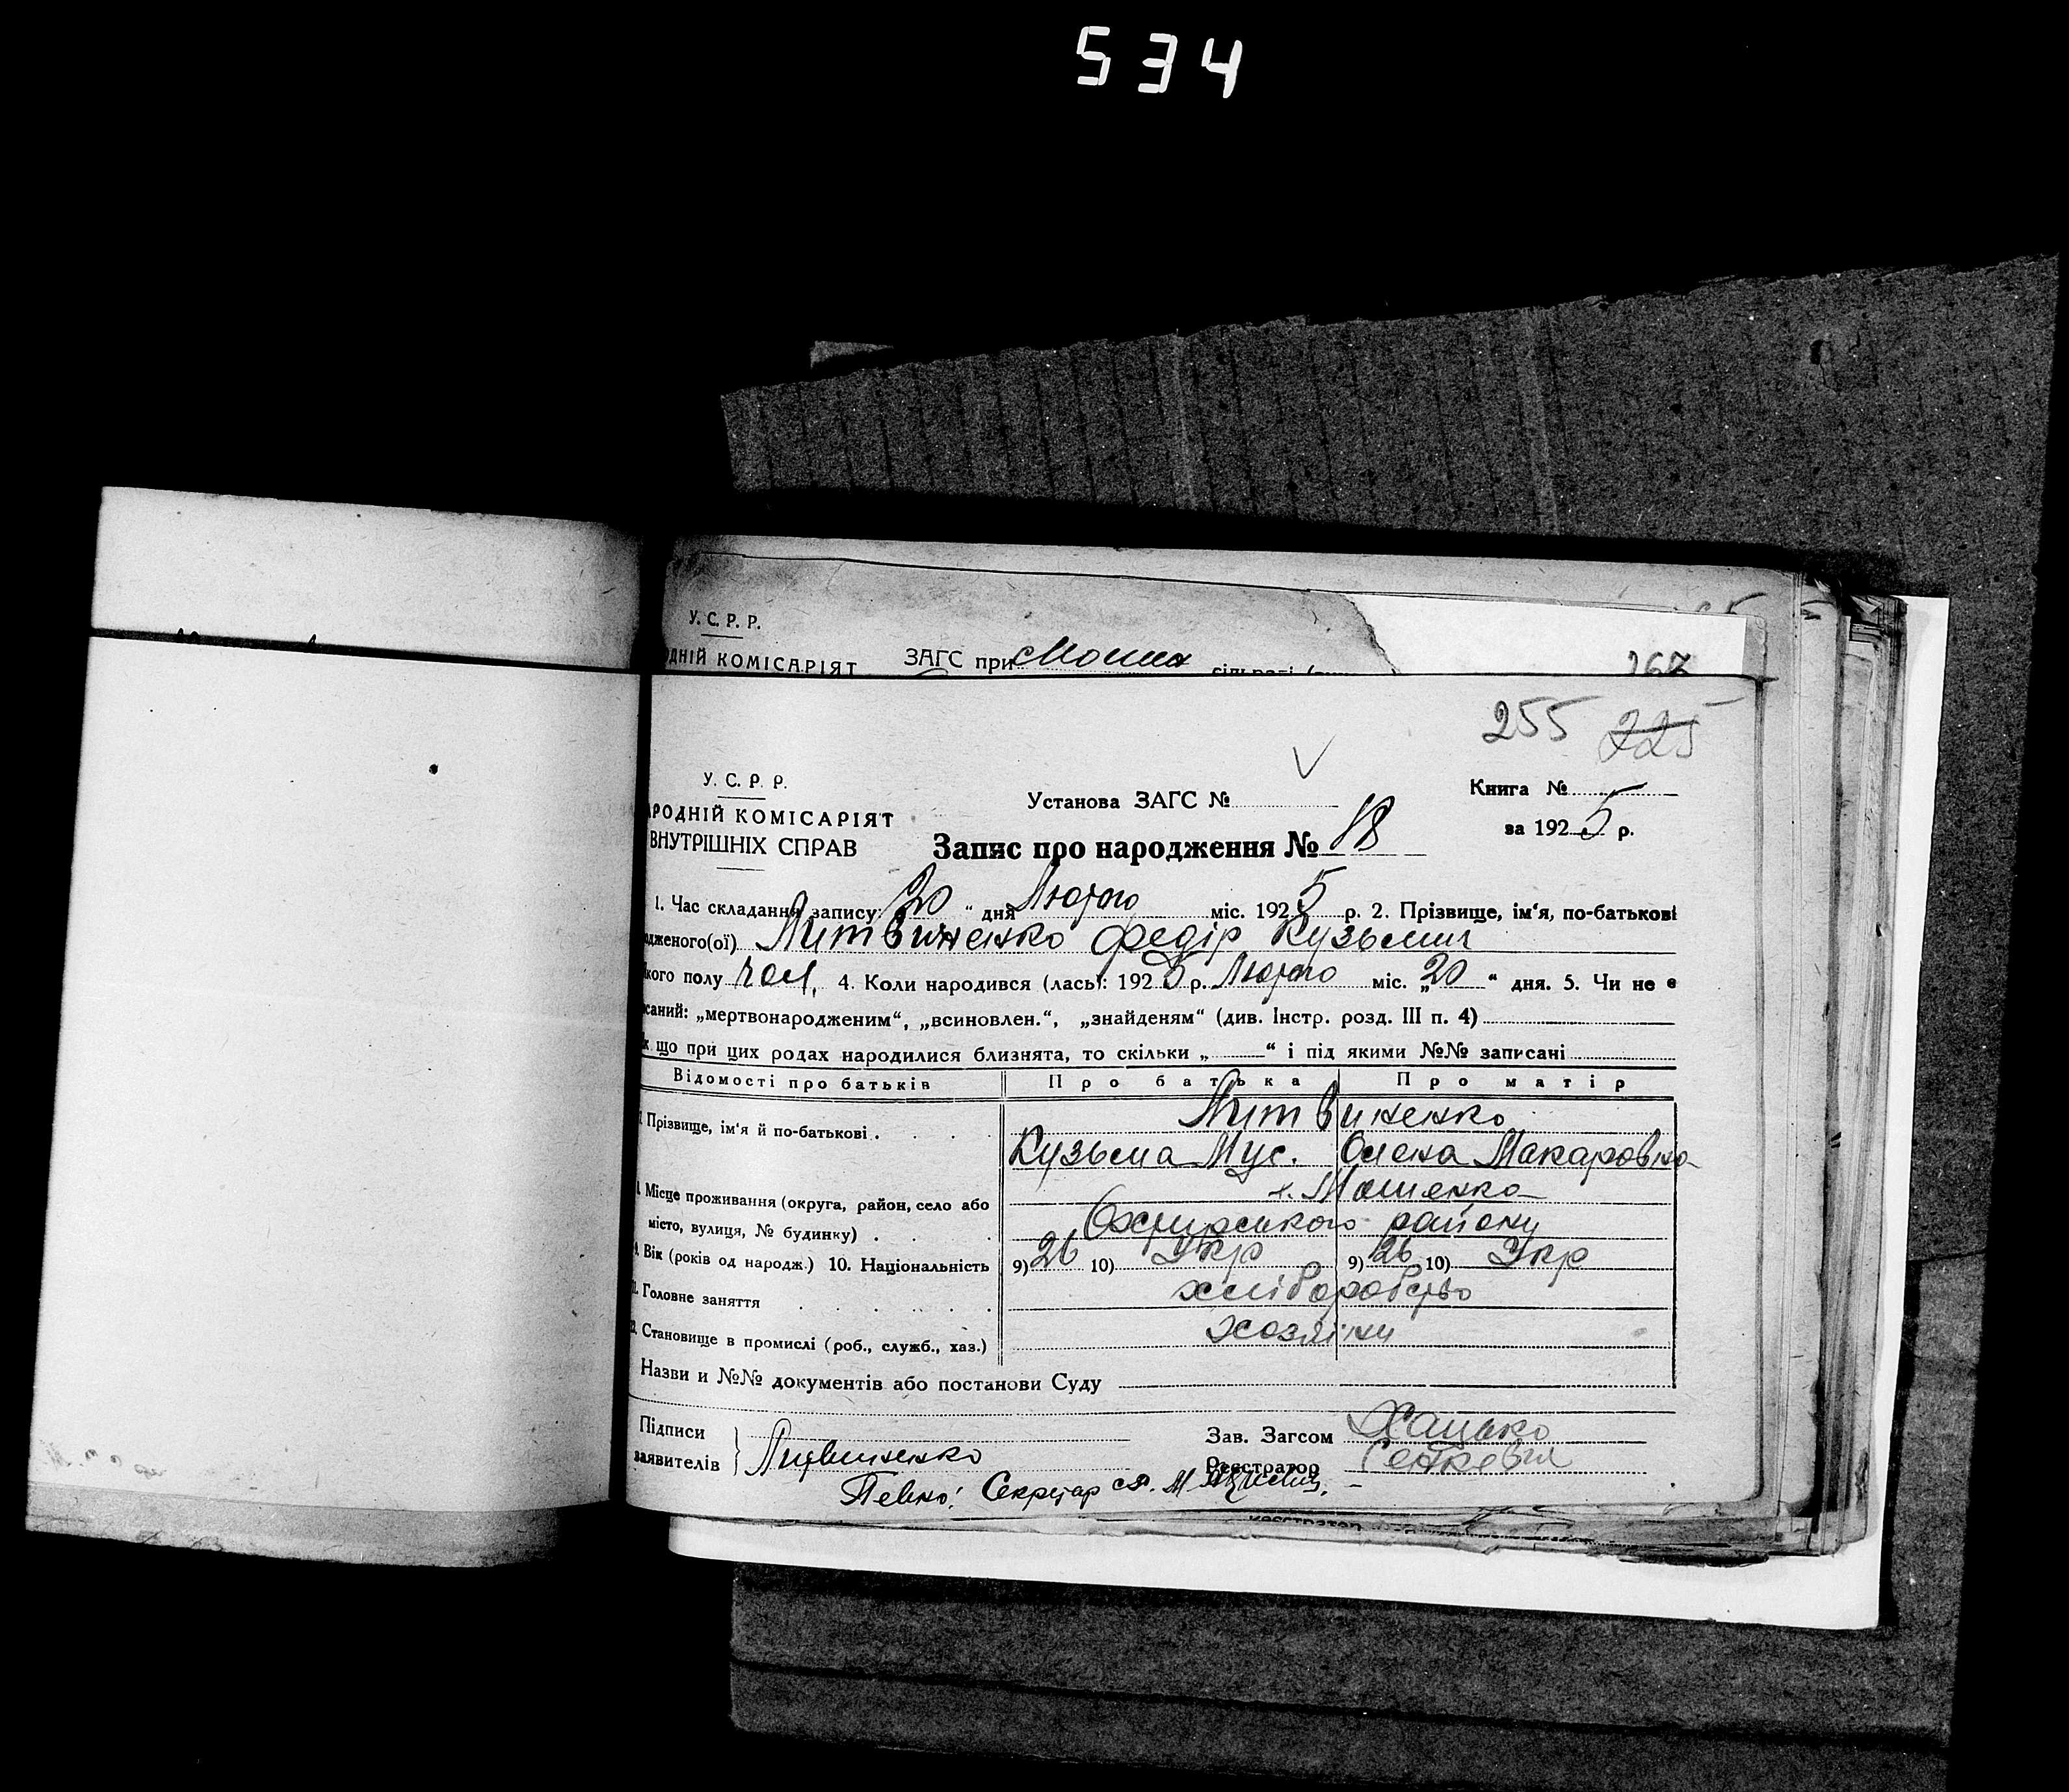 534
У. С. Р. Р.
ДНІЙ КОМІСАРІЯТ ЗАГС при сільраді
267
255 225
У. С. Р. Р.
Установа ЗАГС № Книга №
РОДНІЙ КОМІСАРІЯТ
за 1925 р.
ВНУТРІШНІХ СПРАВ Запис про народження № 18
1. Час складання запису: „20“ дня Лютого міс. 1925 р. 2. Прізвище, ім‘я, по-батькові
дженого(ої) Литвиненко Федір Кузьмич
кого полу чол. 4. Коли народився (лась): 1925 р. Лютого міс. „20“ дня. 5. Чи не є
саний: „мертвонародженим“, „всиновлен.“, „знайденям“ (див. Інстр. розд. III п. 4)
що при цих родах народилися близнята, то скільки „ “ і під якими №№ записані
Відомості про батьків Про батька Про матір
Литвиненко
Прізвище, ім‘я й по-батькові
Кузьма Мус. Олена Макаровна
Місце проживання (округа, район, село або х. Мошенка
місто, вулиця, № будинку) Охтирського району
Вік (років од народж.) 10. Національність 9) 26 10) Укр 9) 26 10) Укр
Головне заняття хліборобство
Становище в промислі (роб., служб., хаз.) хозяїни
Назви и №№ документів або постанови Суду
Підписи Зав. Загсом Хацько
заявителів Литвиненко Реєстратор
Певно: Секретар
Реєстратор